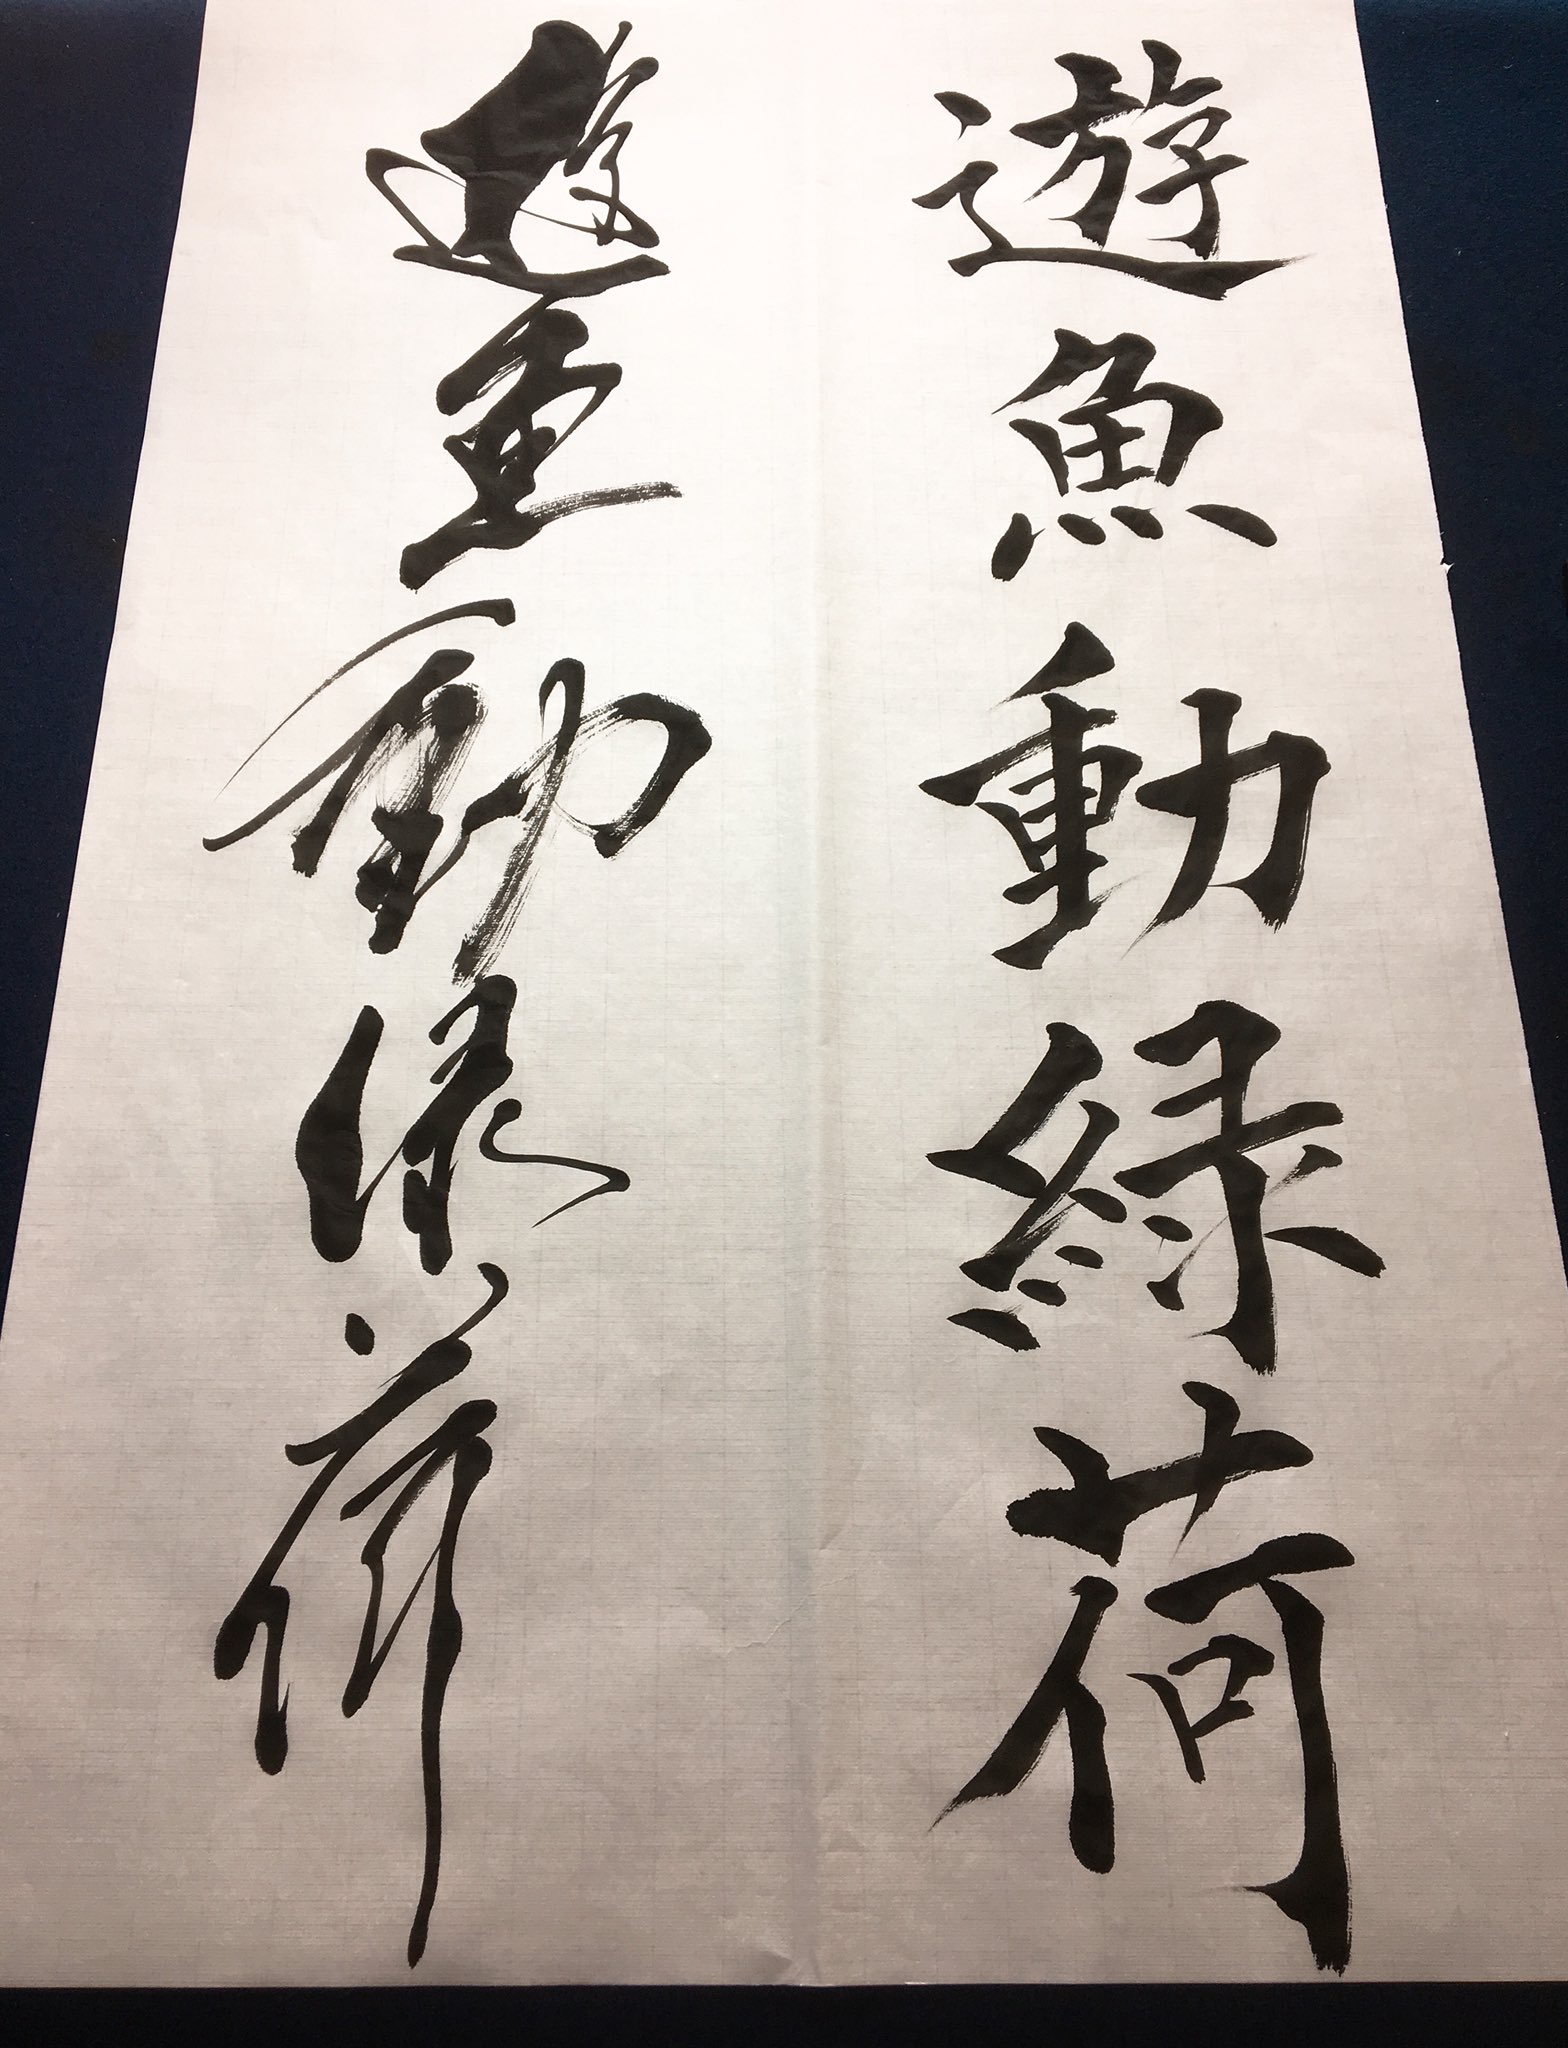 遊魚動緑荷
遊魚動緑荷